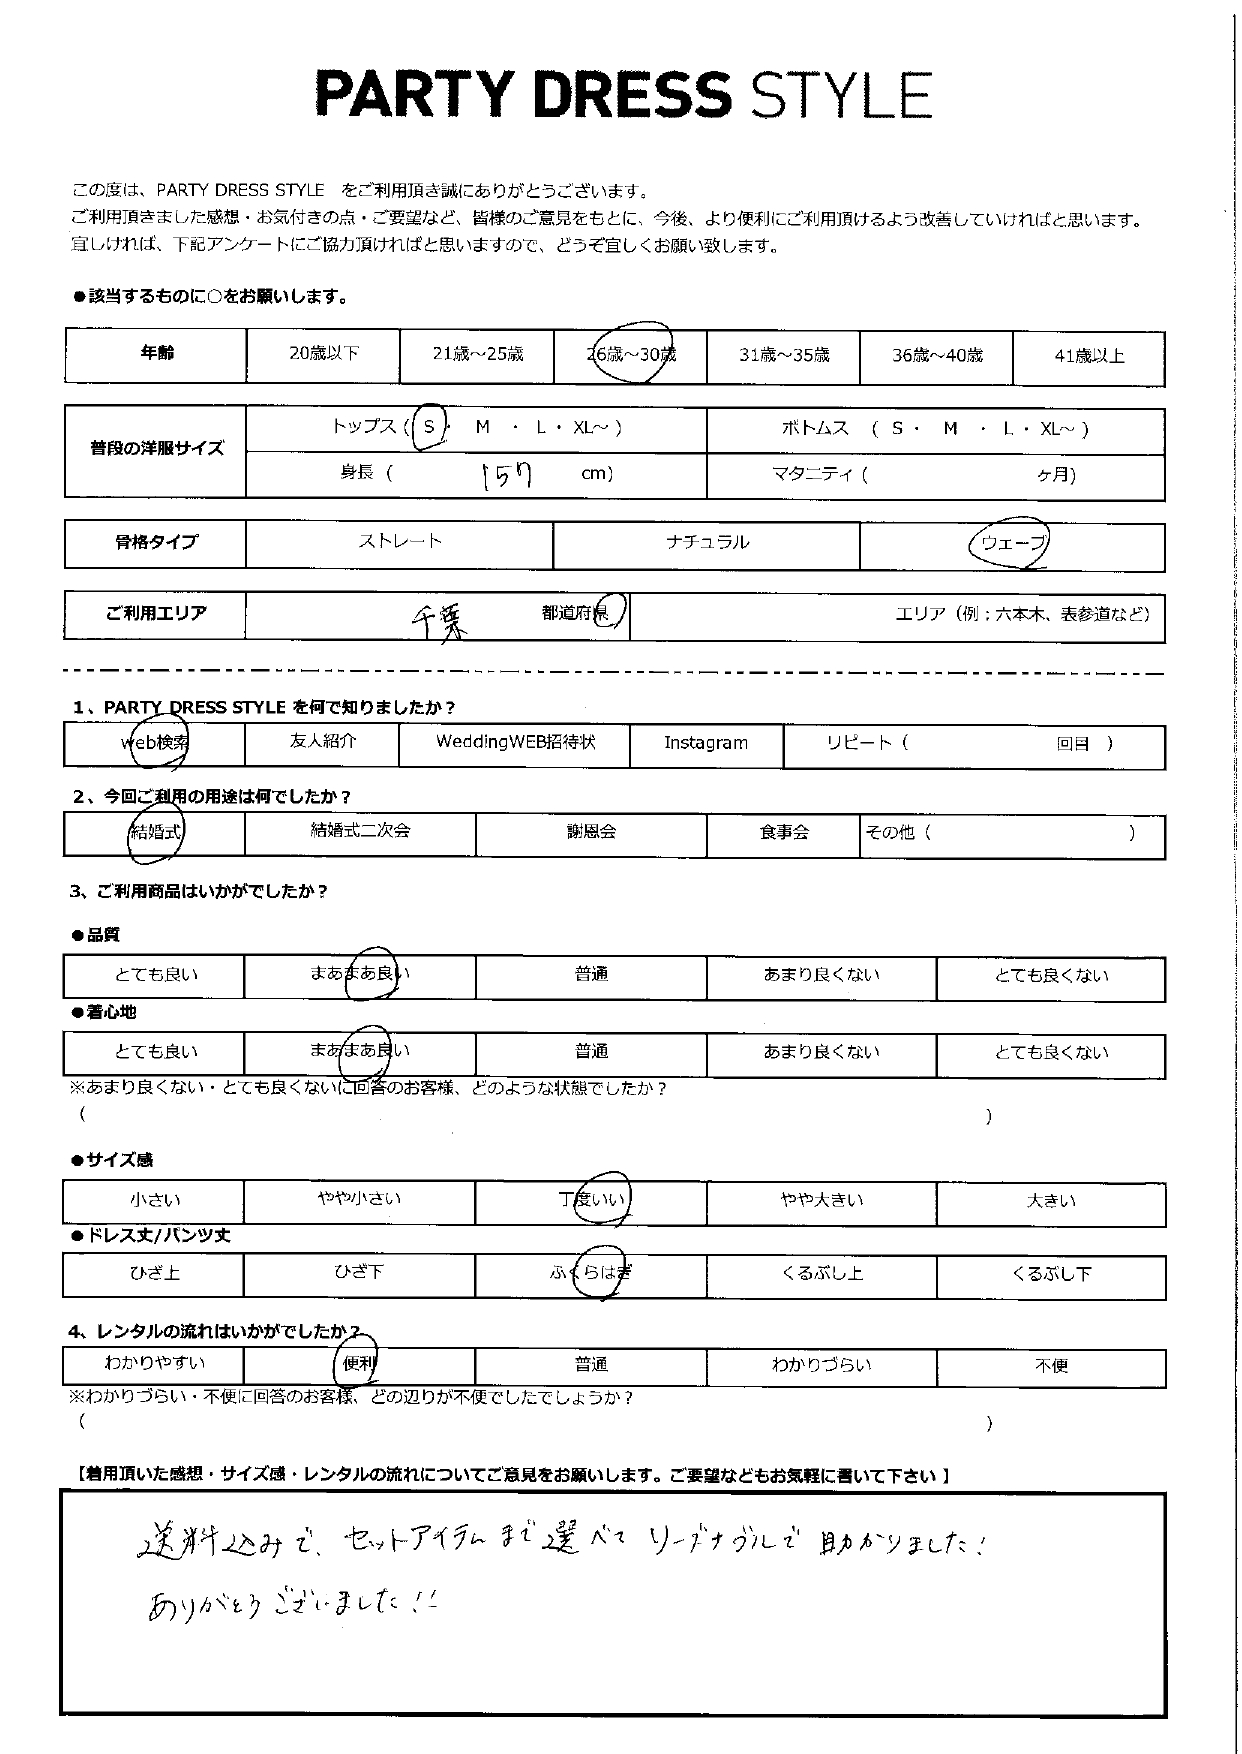 PARTY DRESS STYLE
この度は、PARTY DRESS STYLE をご利用頂き誠にありがとうございます。
ご利用頂きました感想・お気付きの点・ご要望など、皆様のご意見をもとに、今後、より便利にご利用頂けるよう改善していければと思います。
宜しければ、下記アンケートにご協力頂ければと思いますので、どうぞ宜しくお願い致します。
●該当するものに○をお願いします。
年齢 20歳以下 21歳～25歳 26歳～30歳 31歳～35歳 36歳～40歳 41歳以上
普段の洋服サイズ トップス ( S ・ M ・ L ・ XL～ ) ボトムス ( S ・ M ・ L ・ XL～ )
身長 ( 157 cm) マタニティ ( ヶ月)
骨格タイプ ストレート ナチュラル ウェーブ
ご利用エリア 千葉 都道府県 エリア（例；六本木、表参道など）
1、PARTY DRESS STYLE を何で知りましたか？
web検索 友人紹介 WeddingWEB招待状 Instagram リピート ( 回目 )
2、今回ご利用の用途は何でしたか？
結婚式 結婚式二次会 謝恩会 食事会 その他 ( )
3、ご利用商品はいかがでしたか？
●品質
とても良い まあまあ良い 普通 あまり良くない とても良くない
●着心地
とても良い まあまあ良い 普通 あまり良くない とても良くない
※あまり良くない・とても良くないに回答のお客様、どのような状態でしたか？
( )
●サイズ感
小さい やや小さい 丁度いい やや大きい 大きい
●ドレス丈/パンツ丈
ひざ上 ひざ下 ふくらはぎ くるぶし上 くるぶし下
4、レンタルの流れはいかがでしたか？
わかりやすい 便利 普通 わかりづらい 不便
※わかりづらい・不便に回答のお客様、どの辺りが不便でしたでしょうか？
( )
【着用頂いた感想・サイズ感・レンタルの流れについてご意見をお願いします。ご要望などもお気軽に書いて下さい】
送料込みで、セットアイテムまで選べてリーズナブルで助かりました！
ありがとうございました！！